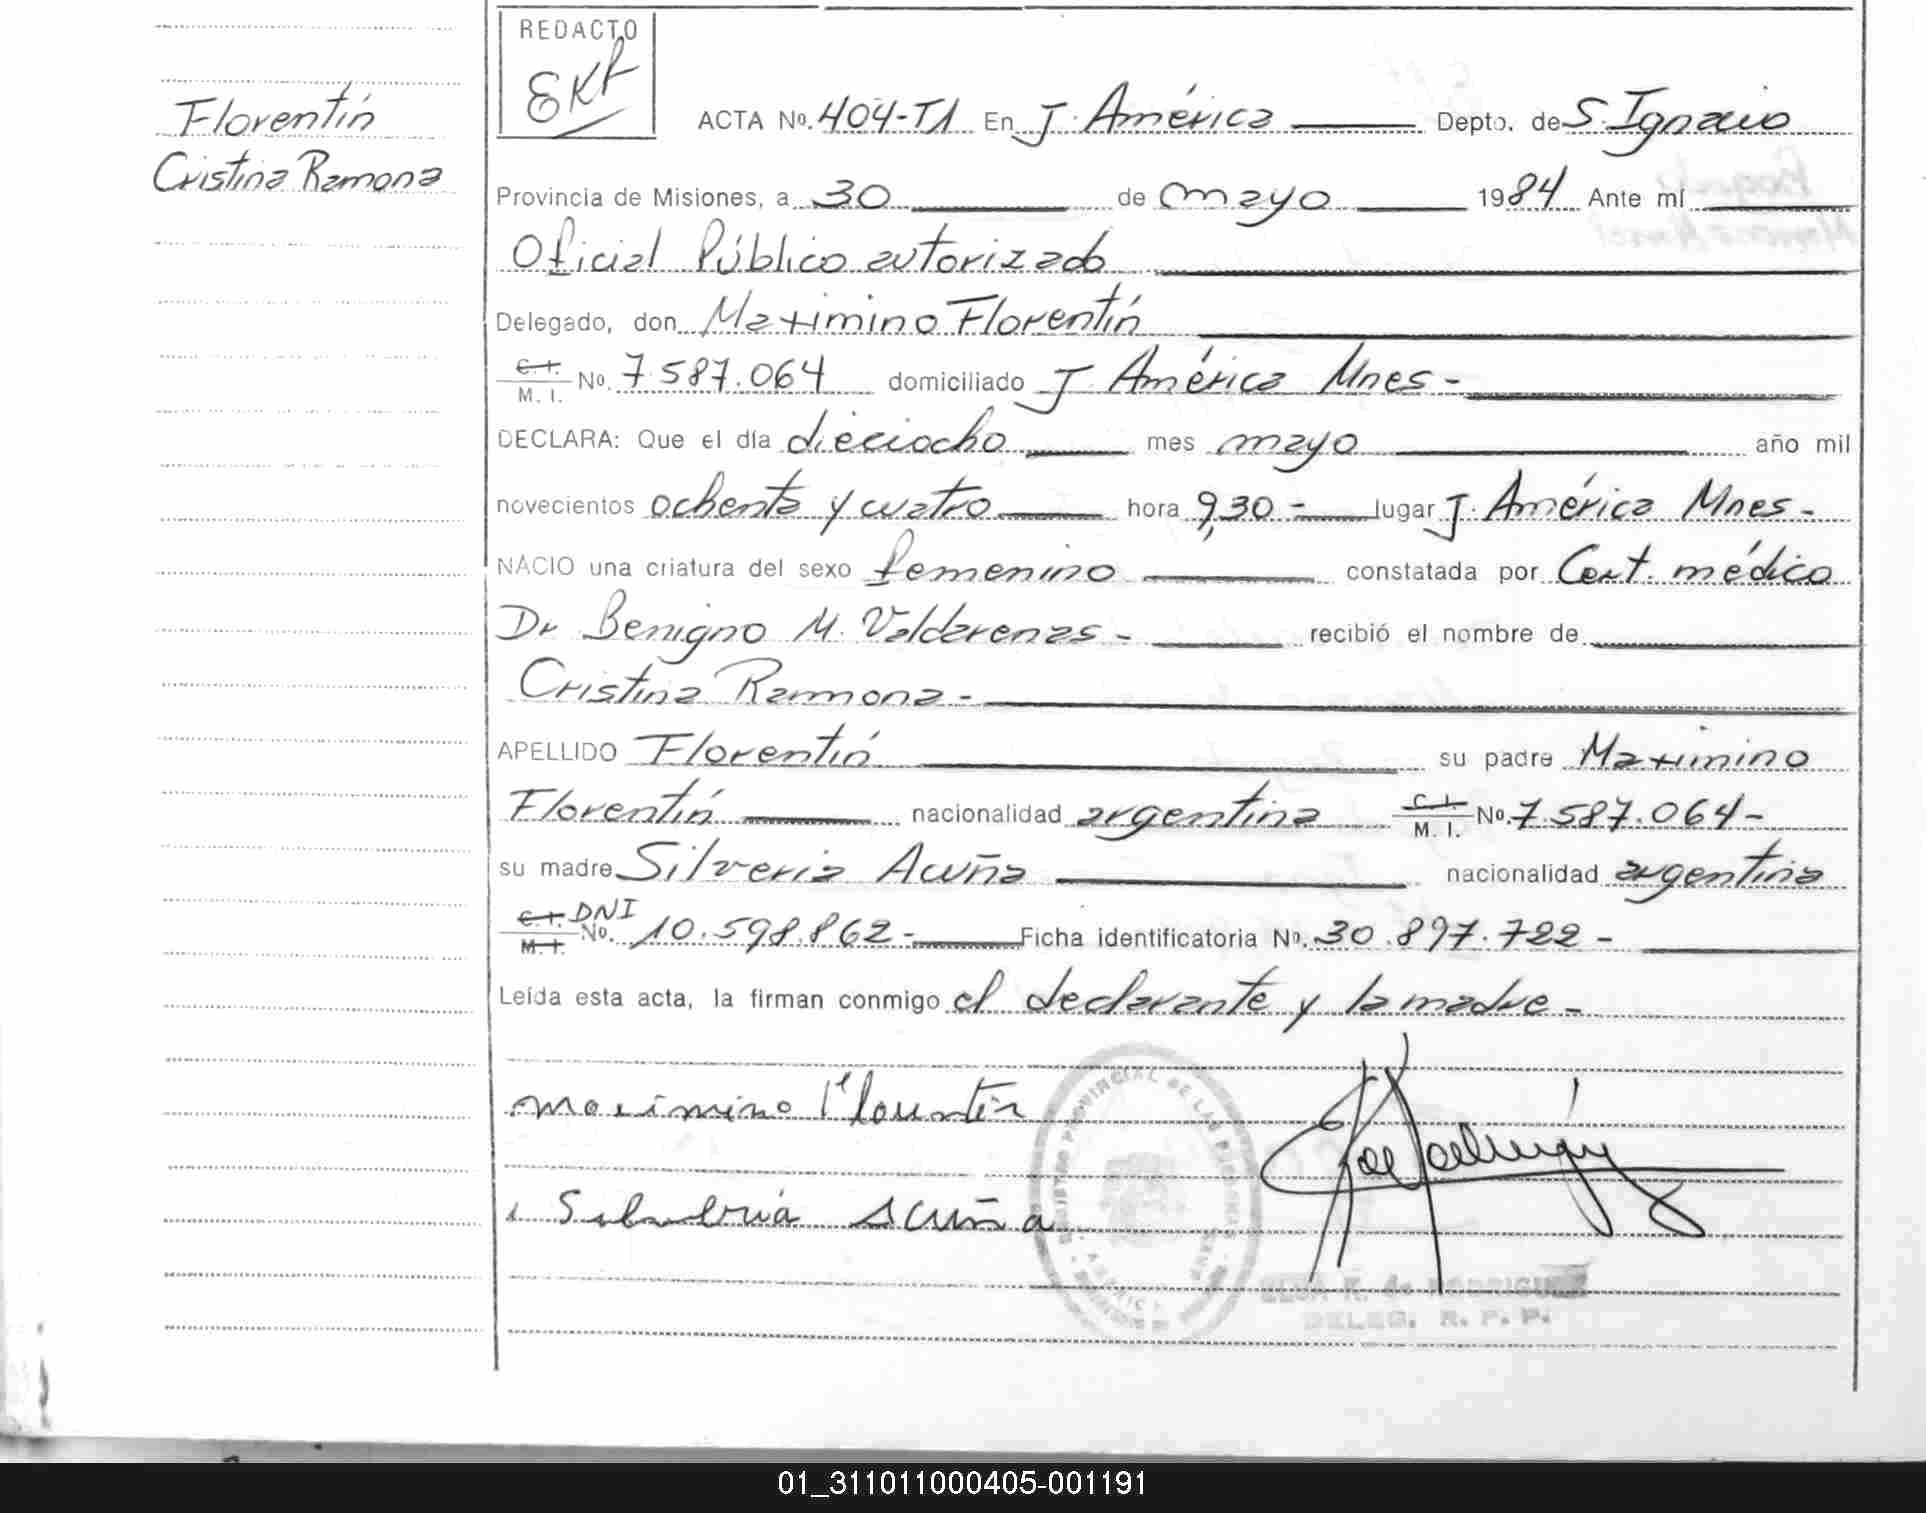 REDACTO
EKR
Florentín
Cristina Ramona
ACTA Nº. 404-T1 En J. América Depto. de S. Ignacio
Provincia de Misiones, a 30 de mayo 1984 Ante mí
Oficial Público autorizado
Delegado, don Maximino Florentín
C.I. M.I. Nº. 7.587.064 domiciliado J. América Mnes-
DECLARA: Que el día dieciocho mes mayo año mil
novecientos ochenta y cuatro hora 9,30- lugar J. América Mnes-
NACIO una criatura del sexo femenino constatada por Cert. médico
Dr Benigno M. Valdarenas- recibió el nombre de
Cristina Ramona-
APELLIDO Florentín su padre Maximino
Florentín nacionalidad argentina C.I. M.I. Nº. 7.587.064-
su madre Silveria Acuña nacionalidad argentina
C.I. M.I. DNI Nº. 10.598.862- Ficha identificatoria Nº. 30.897.722-
Leída esta acta, la firman conmigo el declarante y la madre-
maximino Florentín
Silberia Acuña
REGISTRO PROVINCIAL DE LAS PERSONAS
ELSA K. de RODRIGUEZ
DELEG. R. P. P.
01_311011000405-001191